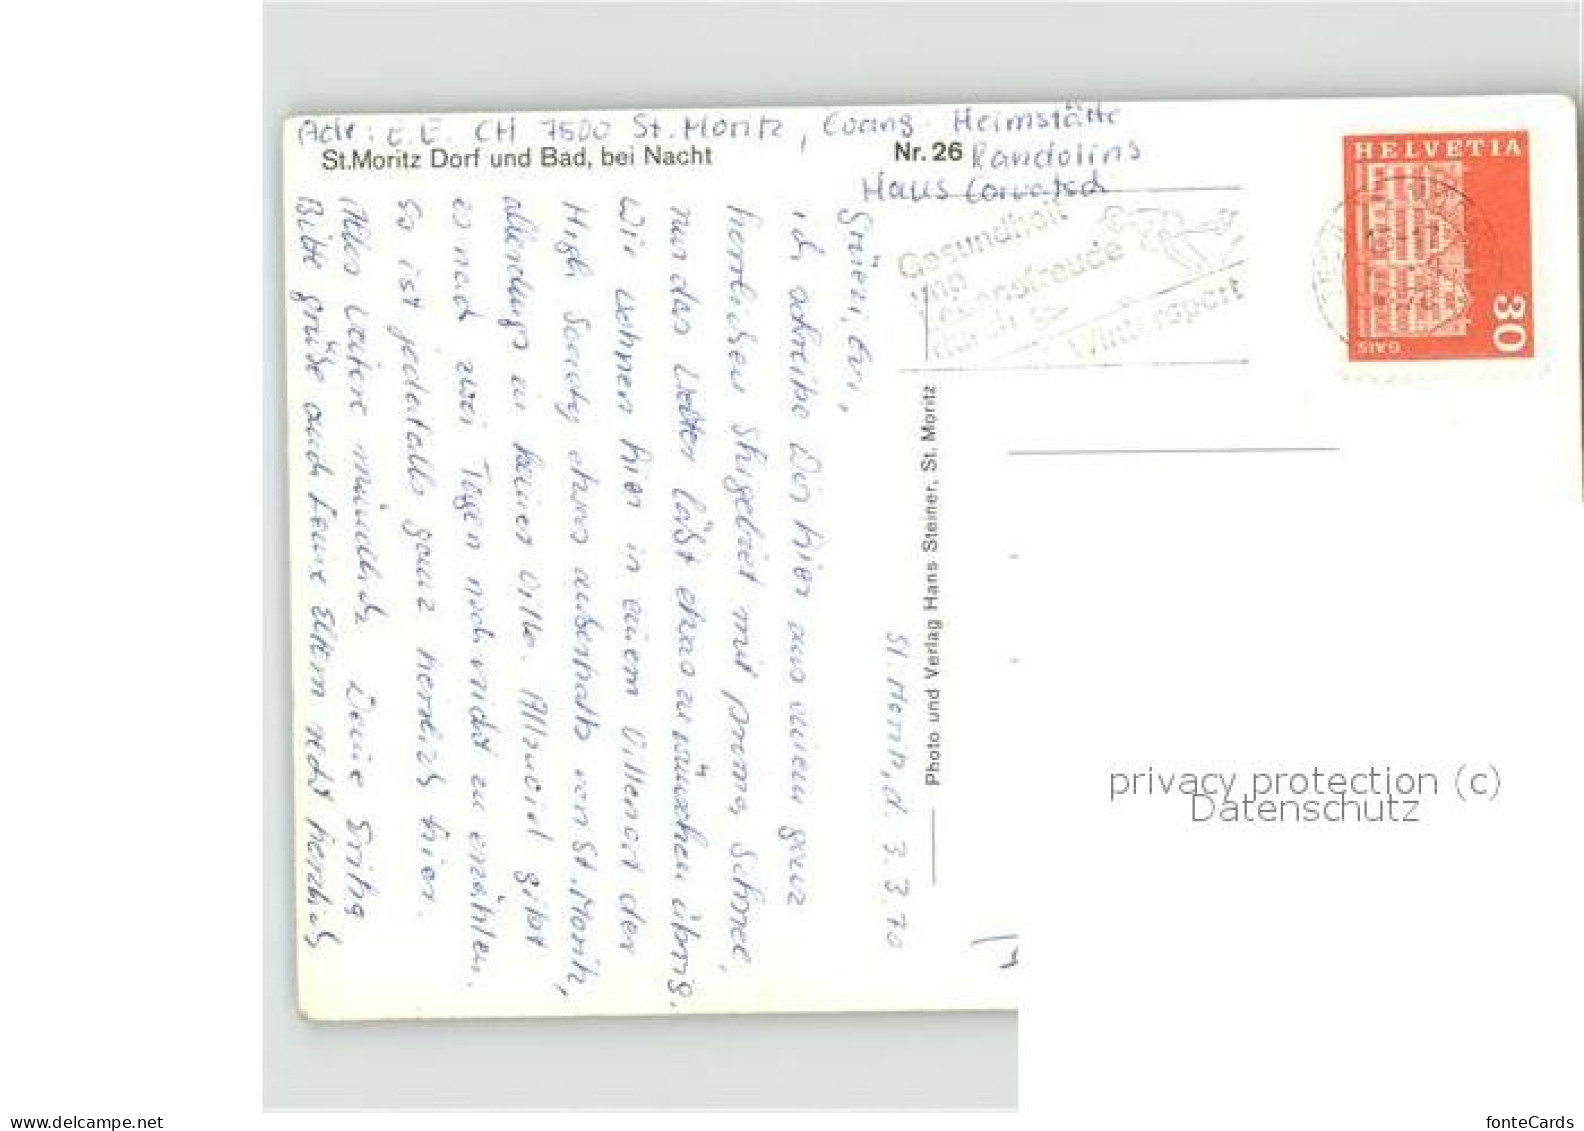 Adr: E.E. CH 7500 St. Moritz, Evang. Heimstätte
Randolins
Haus Corvatsch
St.Moritz Dorf und Bad, bei Nacht
Nr. 26
St. Moritz, d. 3.3.70
Grüezi, Evi,
ich schreibe Dir hier aus einem ganz
herrlichen Skigebiet mit prima Schnee,
nur das Wetter läßt etwas zu wünschen übrig.
Wir wohnen hier in einem Villenort der
High Society etwas außerhalb von St. Moritz,
allerdings in keiner Villa. Allzuviel gibt
es nach zwei Tagen noch nicht zu erzählen.
So ist jedenfalls ganz herrlich hier.
Alles weitere mündlich. Deine
Bitte grüße auch Deine Eltern recht herzlich
Photo und Verlag Hans Steiner, St. Moritz
Gesundheit
und
Lebensfreude
durch
Wintersport
HELVETIA
GAIS
30
privacy protection (c)
Datenschutz
www.delcampe.net
fonteCards